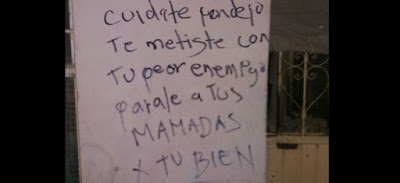 cuidate pendejo
Te metiste con
Tu peor enemigo
parale a TUS
MAMADAS
x TU BIEN